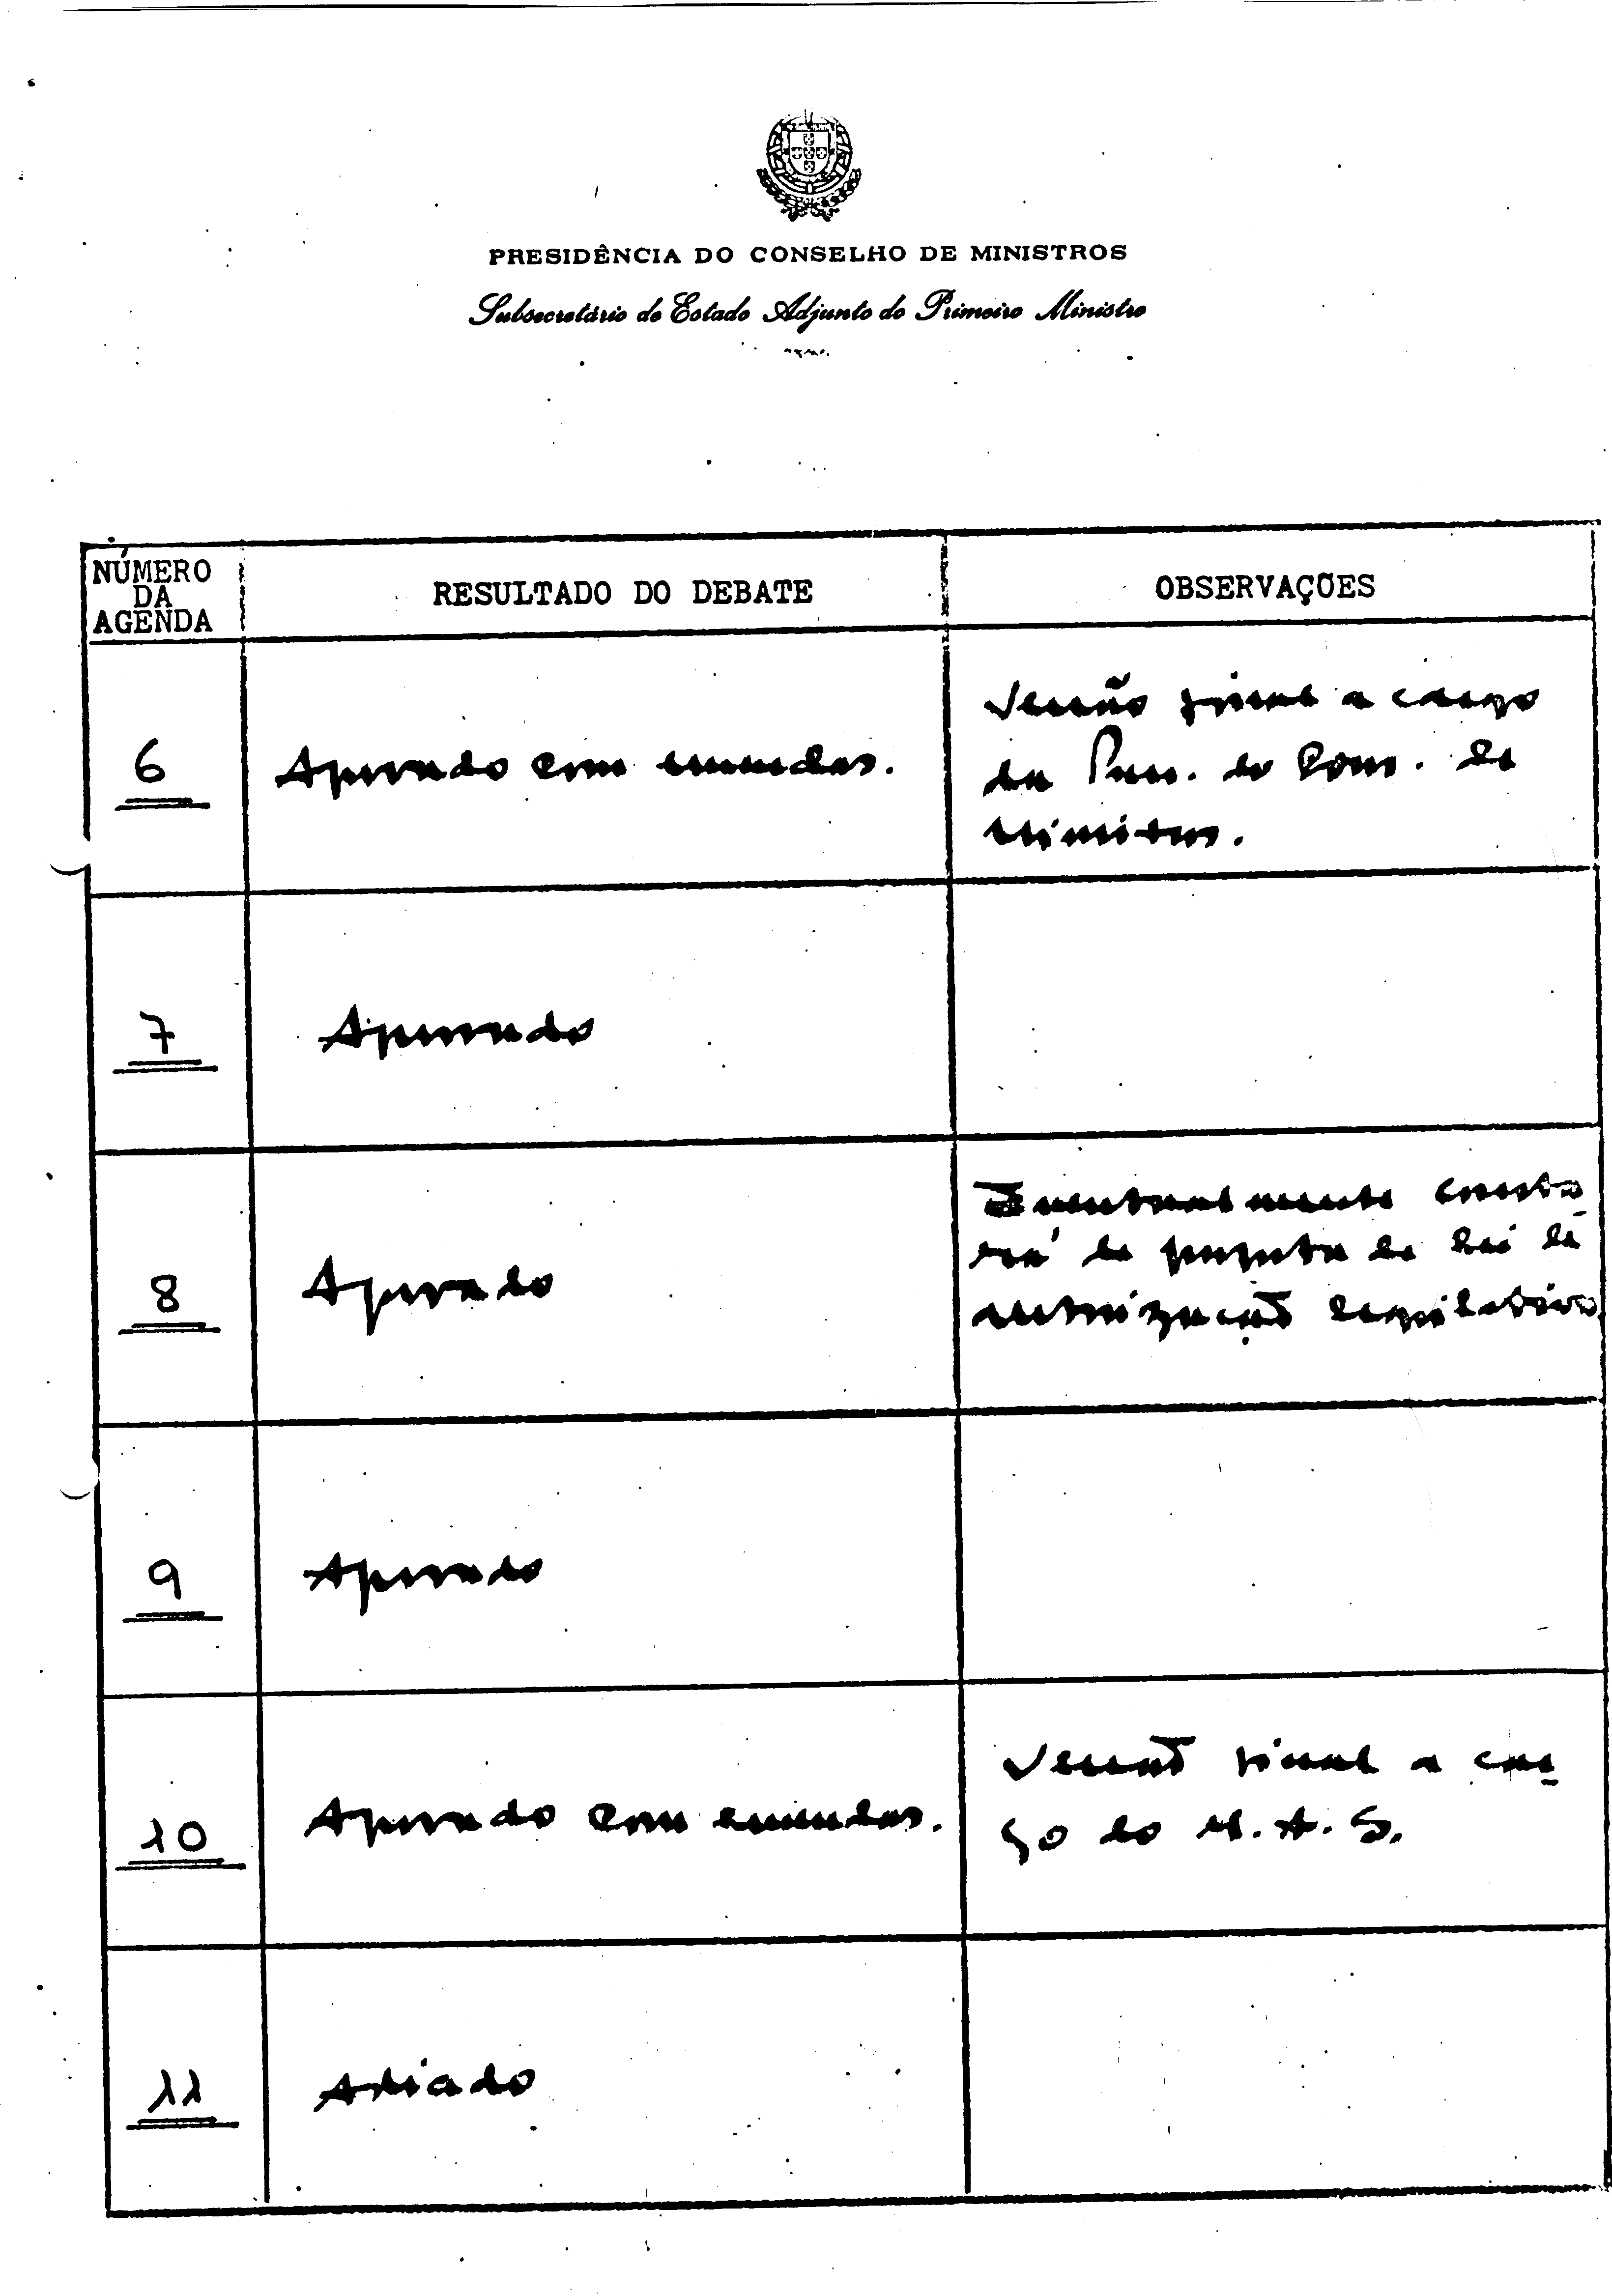 PRESIDÊNCIA DO CONSELHO DE MINISTROS
Subsecretário de Estado Adjunto do Primeiro Ministro
NÚMERO
DA
AGENDA
RESULTADO DO DEBATE
OBSERVAÇÕES
6
Aprovado com emendas.
Versão final a cargo
da Pres. do Cons. de
Ministros.
7
Aprovado
8
Aprovado
Eventualmente consta
rá de proposta de lei de
autorização legislativa
9
Aprovado
10
Aprovado com emendas.
Versão final a car
go do M.A.S.
11
Adiado